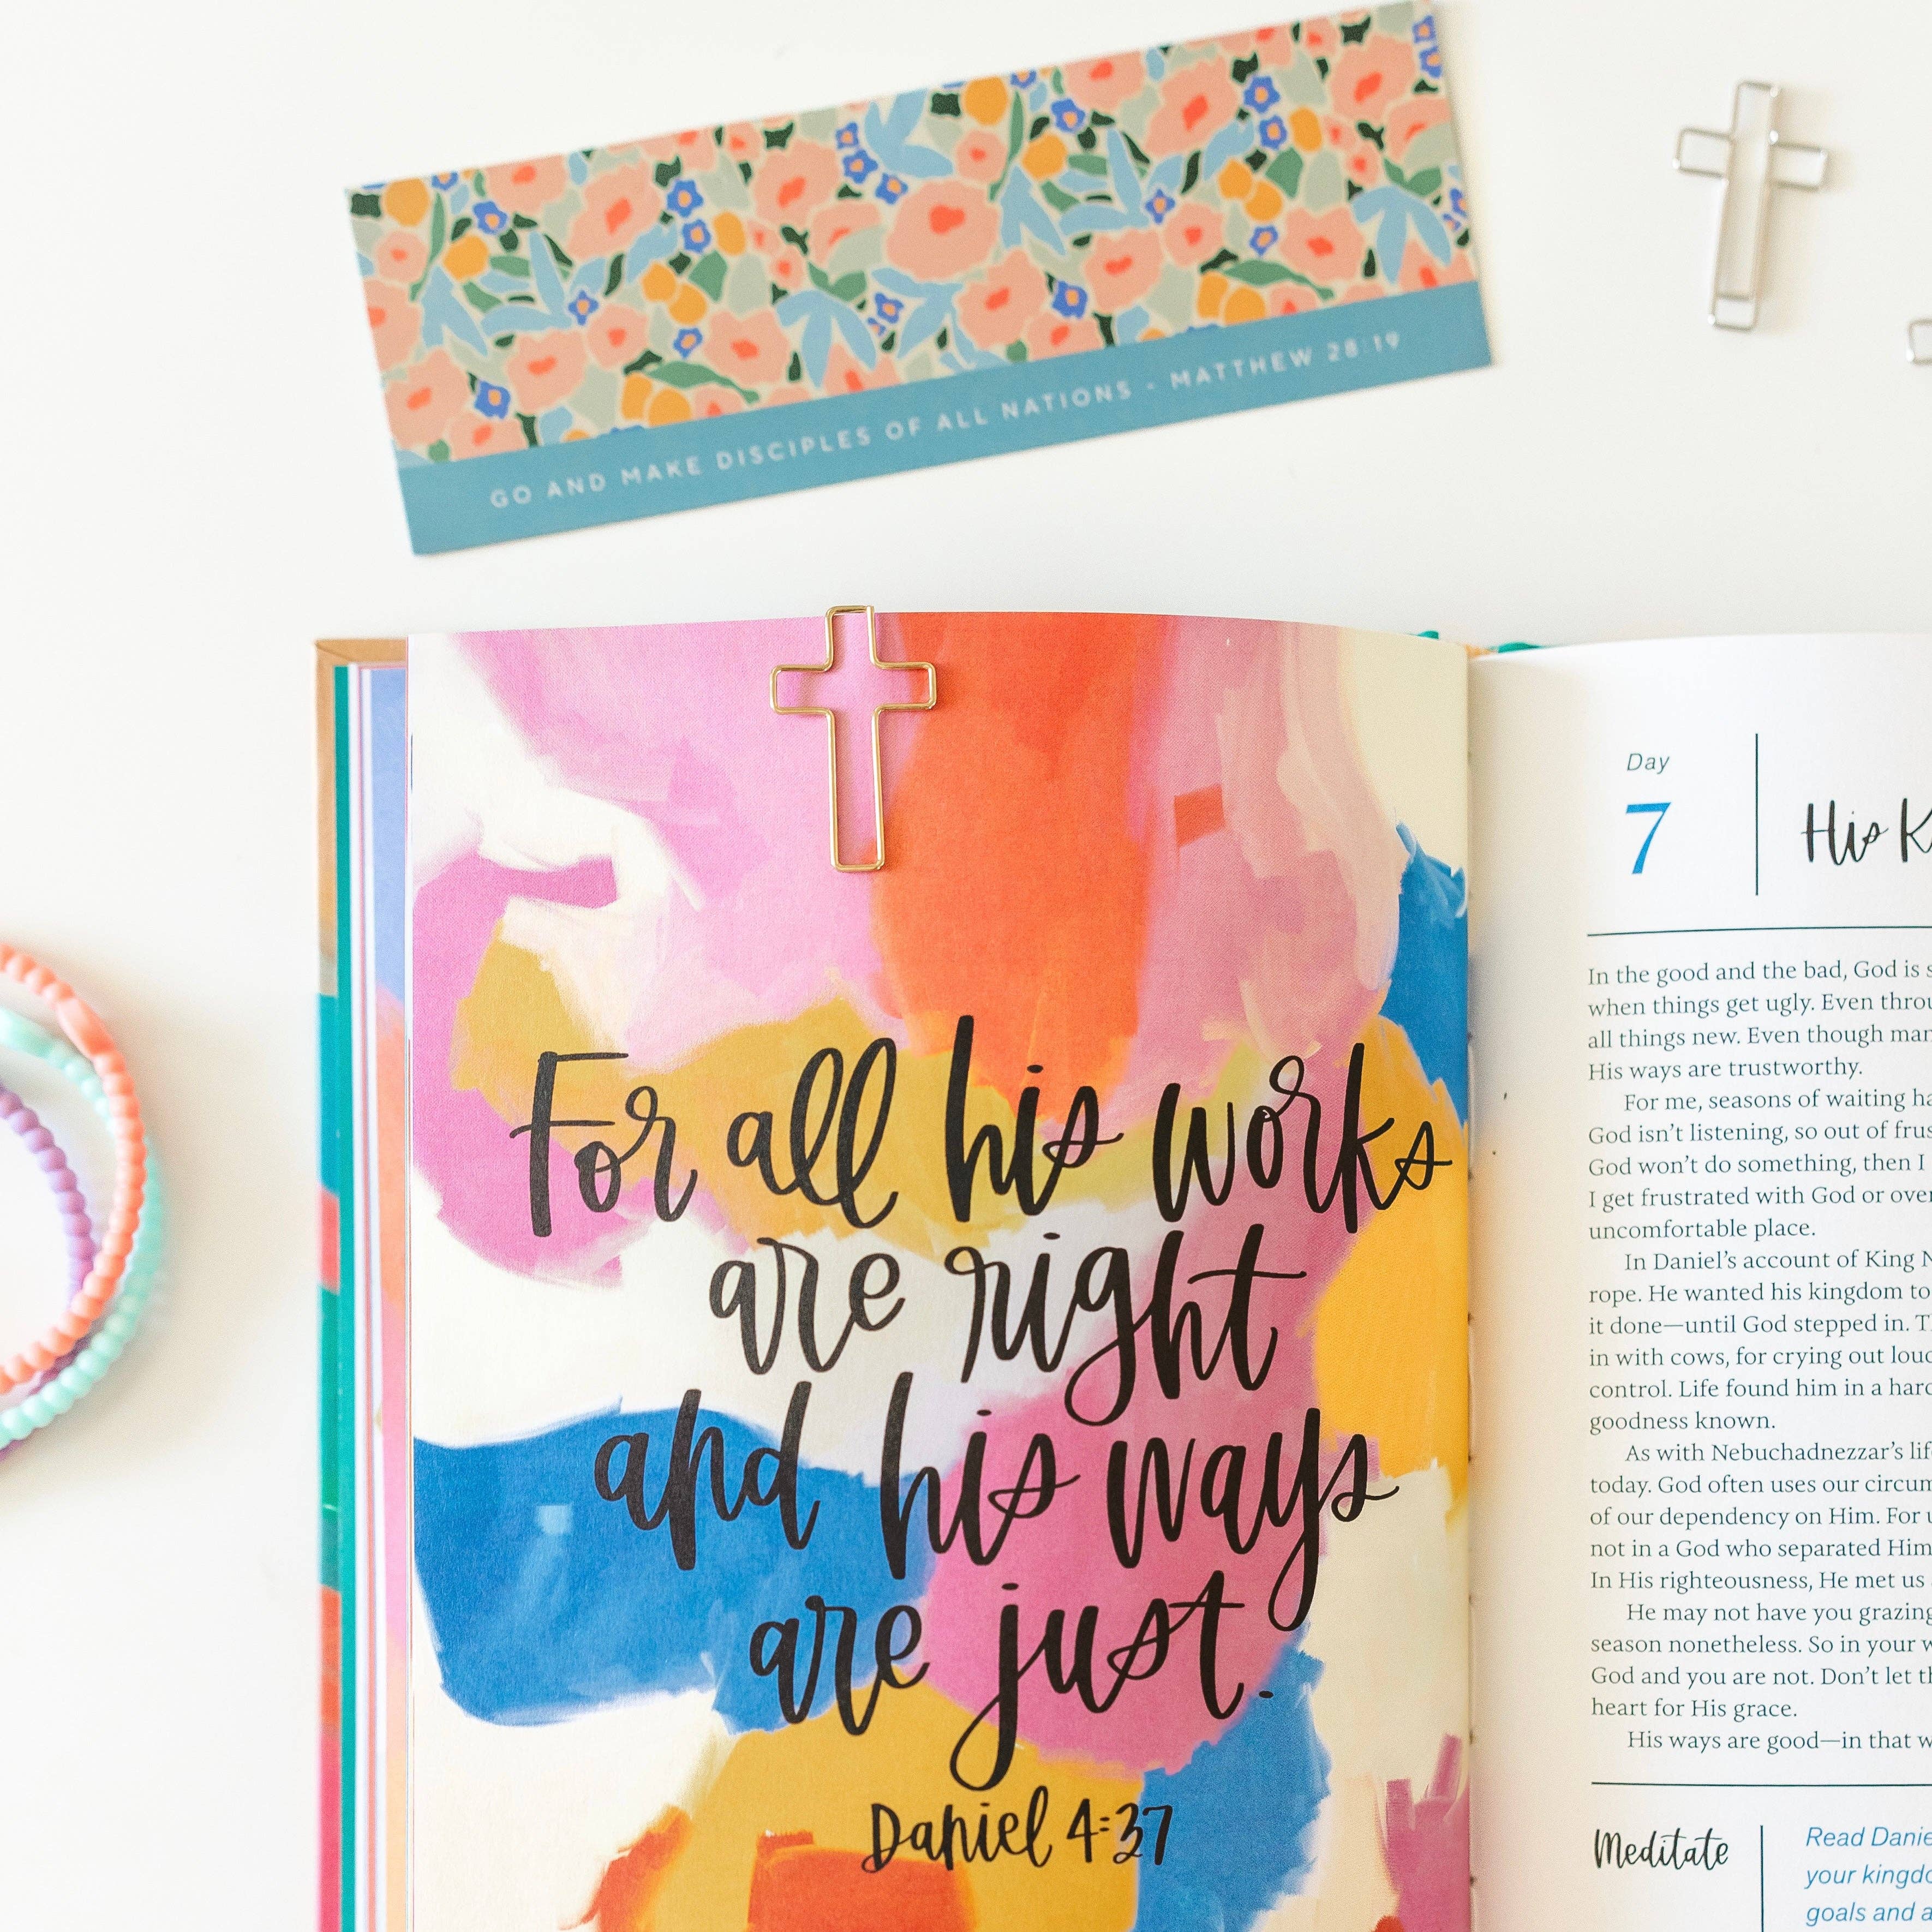 GO AND MAKE DISCIPLES OF ALL NATIONS - MATTHEW 28:19
For all his works
are right
and his ways
are just.
Daniel 4:37
Day
7
His
In the good and the bad, God is
when things get ugly. Even
all things new. Even though
His ways are trustworthy.
For me, seasons of waiting
God isn't listening, so out of
God won't do something, then I
I get frustrated with God or
uncomfortable place.
In Daniel's account of King
rope. He wanted his kingdom to
it done—until God stepped in.
in with cows, for crying out
control. Life found him in a
goodness known.
As with Nebuchadnezzar's
today. God often uses our
of our dependency on Him. For
not in a God who separated
In His righteousness, He met us
He may not have you grazing
season nonetheless. So in your
God and you are not. Don't let
heart for His grace.
His ways are good—in that
Meditate
Read
your
goals and